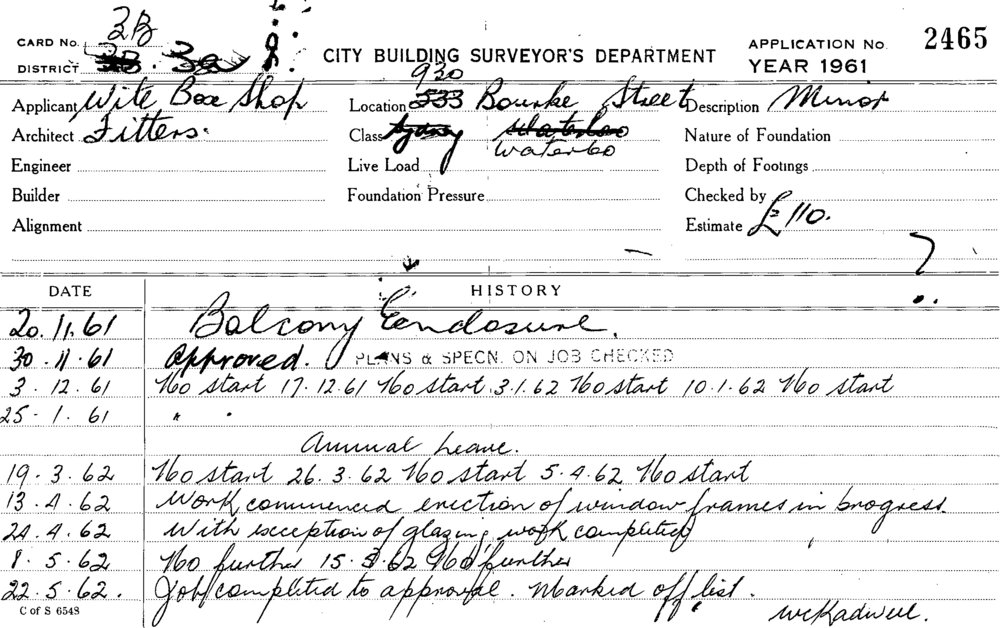 CARD No. 2B
DISTRICT
CITY BUILDING SURVEYOR'S DEPARTMENT
APPLICATION No. 2465
YEAR 1961
Applicant Wite Box Shop
Location 920 Bourke Street
Description Minor
Architect Fitters.
Class Sydney Waterloo
Waterloo
Nature of Foundation
Engineer
Live Load
Depth of Footings
Builder
Foundation Pressure
Checked by
Alignment
Estimate £110.
DATE HISTORY
20.11.61 Balcony Enclosure.
30.11.61 Approved. PLANS & SPECN. ON JOB CHECKED
3.12.61 No start 17.12.61 No start 3.1.62 No start 10.1.62 No start
25.1.61 " "
Annual Leave.
19.3.62 No start 26.3.62 No start 5.4.62 No start
13.4.62 Work commenced erection of window frames in progress.
24.4.62 With exception of glazing work completed
8.5.62 No further 15.5.62 No further
22.5.62. Job completed to approval. Marked off list.
C of S 6548